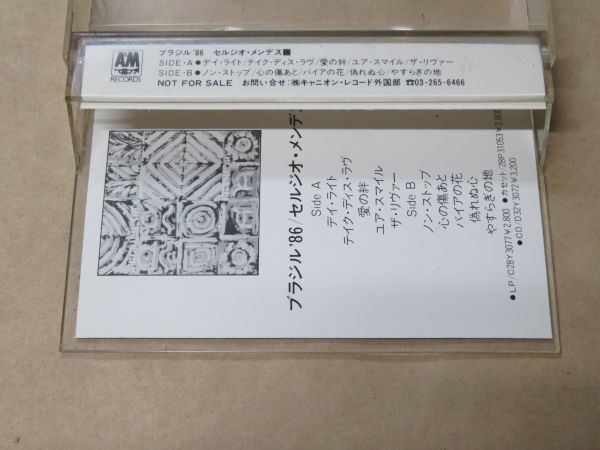 A&M
RECORDS
ブラジル'86 セルジオ・メンデス■
SIDE・A●デイ・ライト/テイク・ディス・ラヴ/愛の絆/ユア・スマイル/ザ・リヴァー
SIDE・B●ノン・ストップ/心の傷あと/バイアの花/偽れぬ心/やすらぎの地
NOT FOR SALE お問い合せ:㈱キャニオン・レコード外国部 ☎03-265-6466
ブラジル'86/セルジオ・メンデス
Side A
デイ・ライト
テイク・ディス・ラヴ
愛の絆
ユア・スマイル
ザ・リヴァー
Side B
ノン・ストップ
心の傷あと
バイアの花
偽れぬ心
やすらぎの地
●LP/C28Y3077¥2,800 ●カセット/28P31053¥2,800
●CD/D32Y3072¥3,200